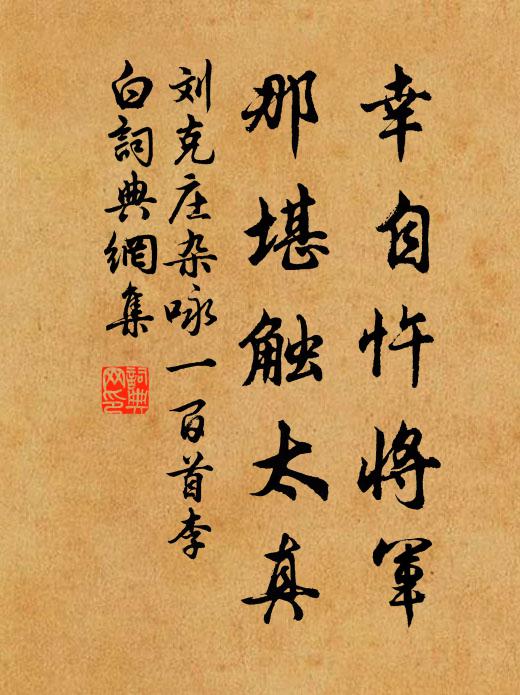 幸自忤将军
那堪触太真
刘克庄杂咏一百首李
白詞典網集
詞典
网印